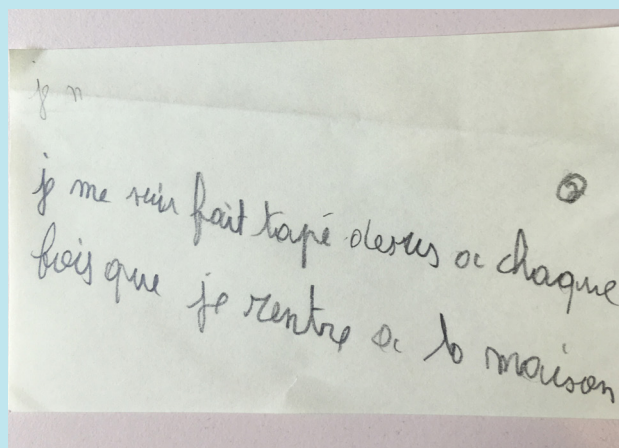 je m
②
je me suis fait tapé desus a chaque
fois que je rentre a la maison